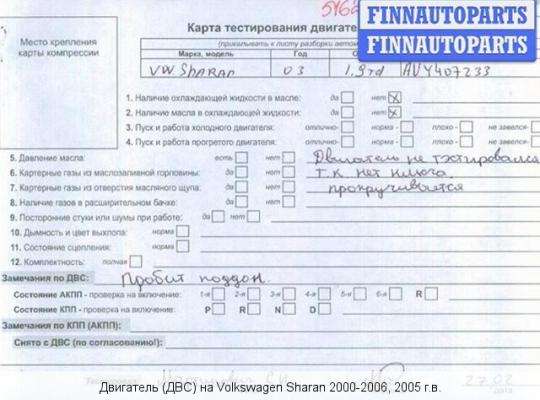 FINNAUTOPARTS
FINNAUTOPARTS
Место крепления
карты компрессии
Карта тестирования двигате
(прикалывать к листу разборки автом
Марка, модель Год
VW SHARAN 03 1.9td AUY407233
1. Наличие охлаждающей жидкости в масле: да нет X
2. Наличие масла в охлаждающей жидкости: да нет X
3. Пуск и работа холодного двигателя: отлично- норма - плохо - не завелся-
4. Пуск и работа прогретого двигателя: отлично- норма - плохо - не завелся-
5. Давление масла: есть нет Двигатель не тэстировался
6. Картерные газы из маслозаливной горловины: да нет т.к. нет ключа.
7. Картерные газы из отверстия масляного щупа: да нет прокручивается
8. Наличие газов в расширительном бачке: да нет
9. Посторонние стуки или шумы при работе: да нет
10. Дымность и цвет выхлопа: норма
11. Состояние сцепления: норма
12. Комплектность: полная
Замечания по ДВС: Пробит поддон.
Состояние АКПП - проверка на включение: 1-я 2-я 3-я 4-я 5-я 6-я R
Состояние КПП - проверка на включение: P R N D
Замечания по КПП (АКПП):
Снято с ДВС (по согласованию!):
27.02
Двигатель (ДВС) на Volkswagen Sharan 2000-2006, 2005 г.в.